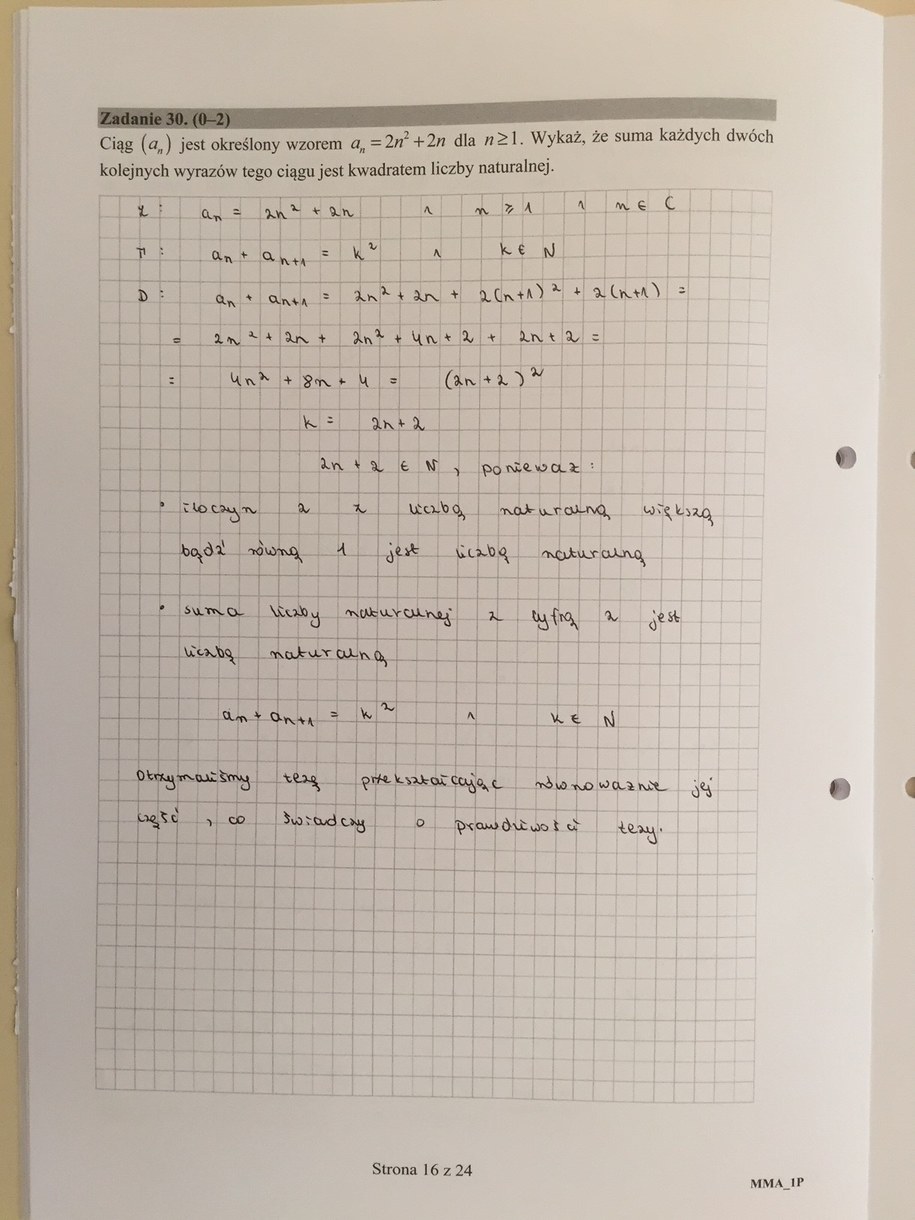 Zadanie 30. (0–2)
Ciąg (aₙ) jest określony wzorem aₙ = 2n² + 2n dla n ≥ 1. Wykaż, że suma każdych dwóch
kolejnych wyrazów tego ciągu jest kwadratem liczby naturalnej.
Z: aₙ = 2n² + 2n ∧ n ⩾ 1 ∧ n ∈ C
T: aₙ + aₙ₊₁ = k² ∧ k ∈ N
D: aₙ + aₙ₊₁ = 2n² + 2n + 2(n+1)² + 2(n+1) =
= 2n² + 2n + 2n² + 4n + 2 + 2n + 2 =
= 4n² + 8n + 4 = (2n + 2)²
k = 2n + 2
2n + 2 ∈ N, ponieważ:
• iloczyn 2 z liczbą naturalną większą
bądź równą 1 jest liczbą naturalną
• suma liczby naturalnej z cyfrą 2 jest
liczbą naturalną
aₙ + aₙ₊₁ = k² ∧ k ∈ N
Otrzymaliśmy tezę przekształcając równoważnie jej
część, co świadczy o prawdziwości tezy.
Strona 16 z 24
MMA_1P